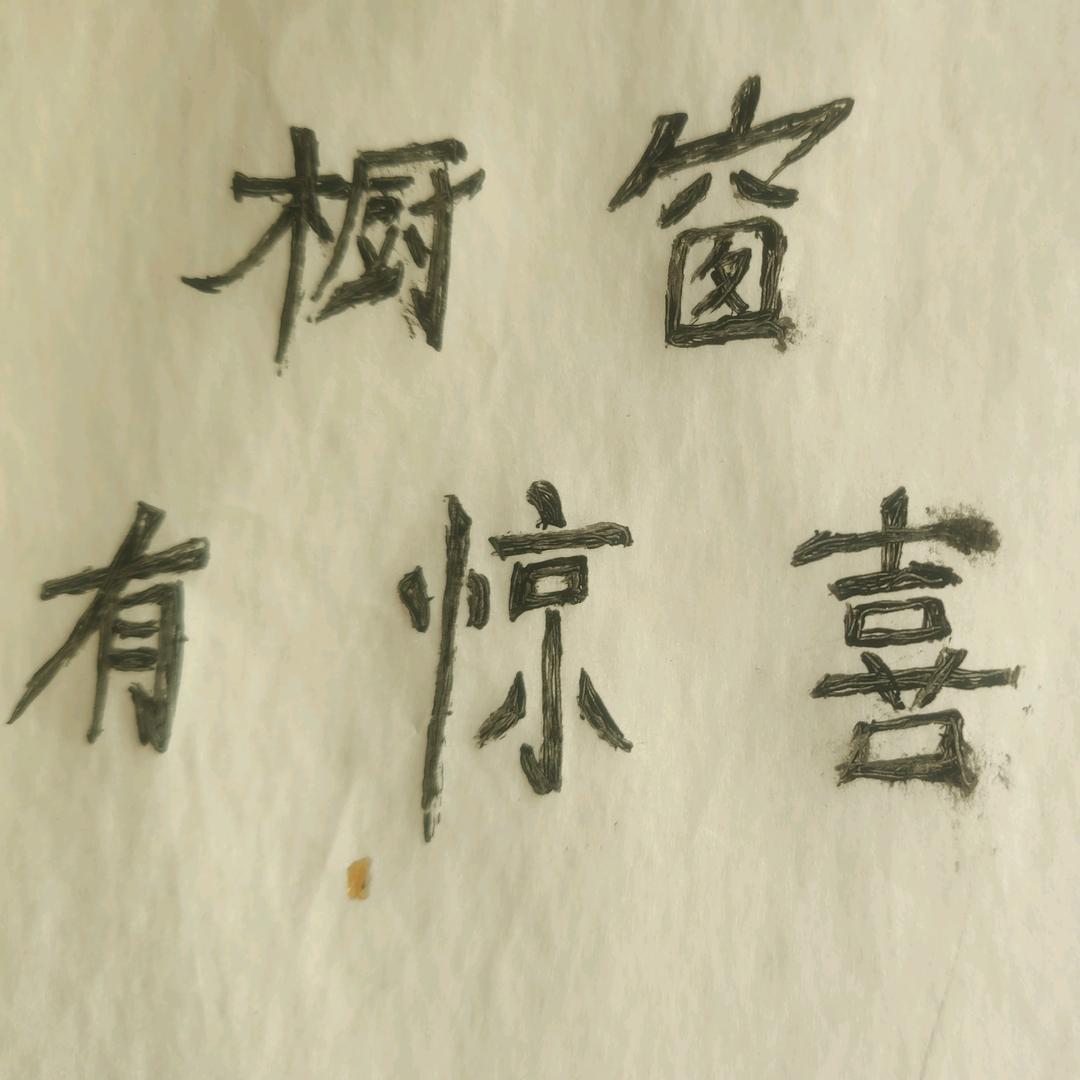 橱窗
有惊喜